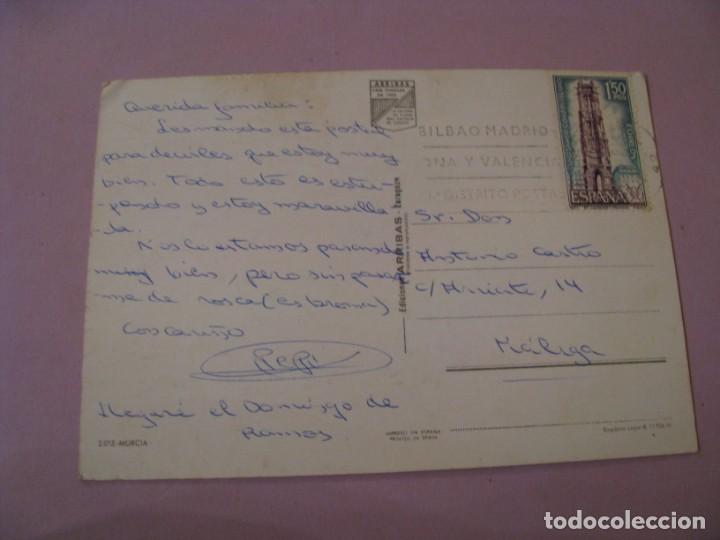 Querida familia:
Les mando esta postal
para decirles que estoy muy
bien. Todo esto es estu-
pendo y estoy maravilla-
da.
Nos lo estamos pasando
muy bien, pero sin pasar-
me de rosca (es broma)
Con cariño
Pepi
Llegaré el Domingo de
Ramos
2.012-MURCIA
ARRIBAS
Ediciones ARRIBAS - Zaragoza
IMPRESO EN ESPAÑA
PRINTED IN SPAIN
BILBAO MADRID
ONA Y VALENCIA
DISTRITO POSTAL
1,50
PTAS
CORREOS
ESPAÑA
Sr. Don
Antonio Castro
C/ 14
Málaga
Depósito Legal B.
todocoleccion.net